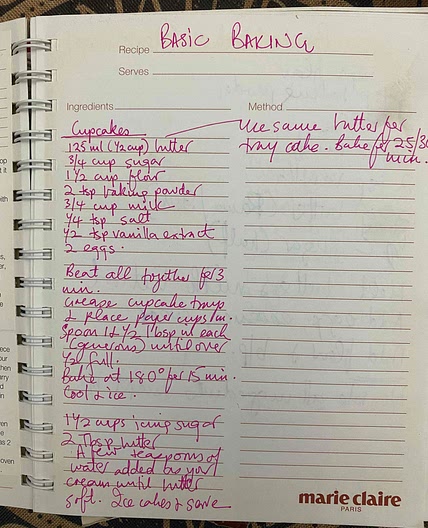 Recipe BASIC BAKING
Serves
Ingredients
Method
Cupcakes
125 ml (1/2 cup) butter
3/4 cup sugar
1 1/2 cup flour
2 tsp baking powder
3/4 cup milk
1/4 tsp salt
1/2 tsp vanilla extract
2 eggs.
Beat all together for 3
min.
Grease cupcake tray
& place paper cups in.
Spoon 1 & 1/2 Tbsp in each
(generous) until over
1/2 full.
Bake at 180° for 15 min.
Cool & ice.
1 1/2 cups icing sugar
2 Tbsp butter
A few teaspoons of
water added as you
cream until
soft. Ice cakes & save
Use same batter for
tray cake. Bake for 25/30
min.
marie claire
PARIS